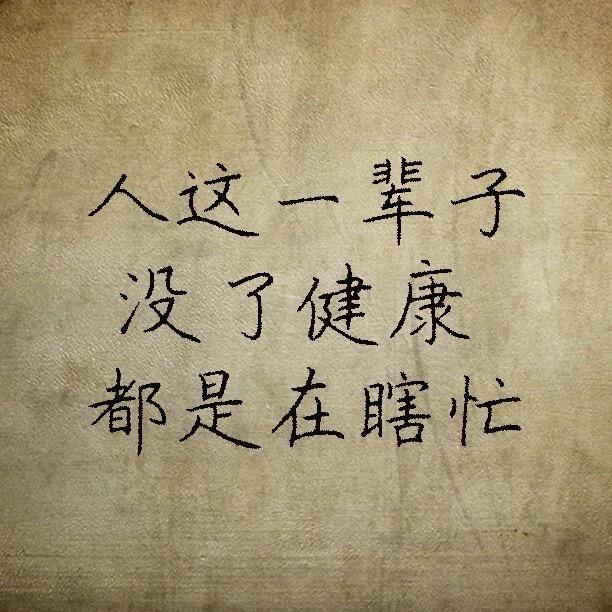 人这一辈子
没了健康
都是在瞎忙